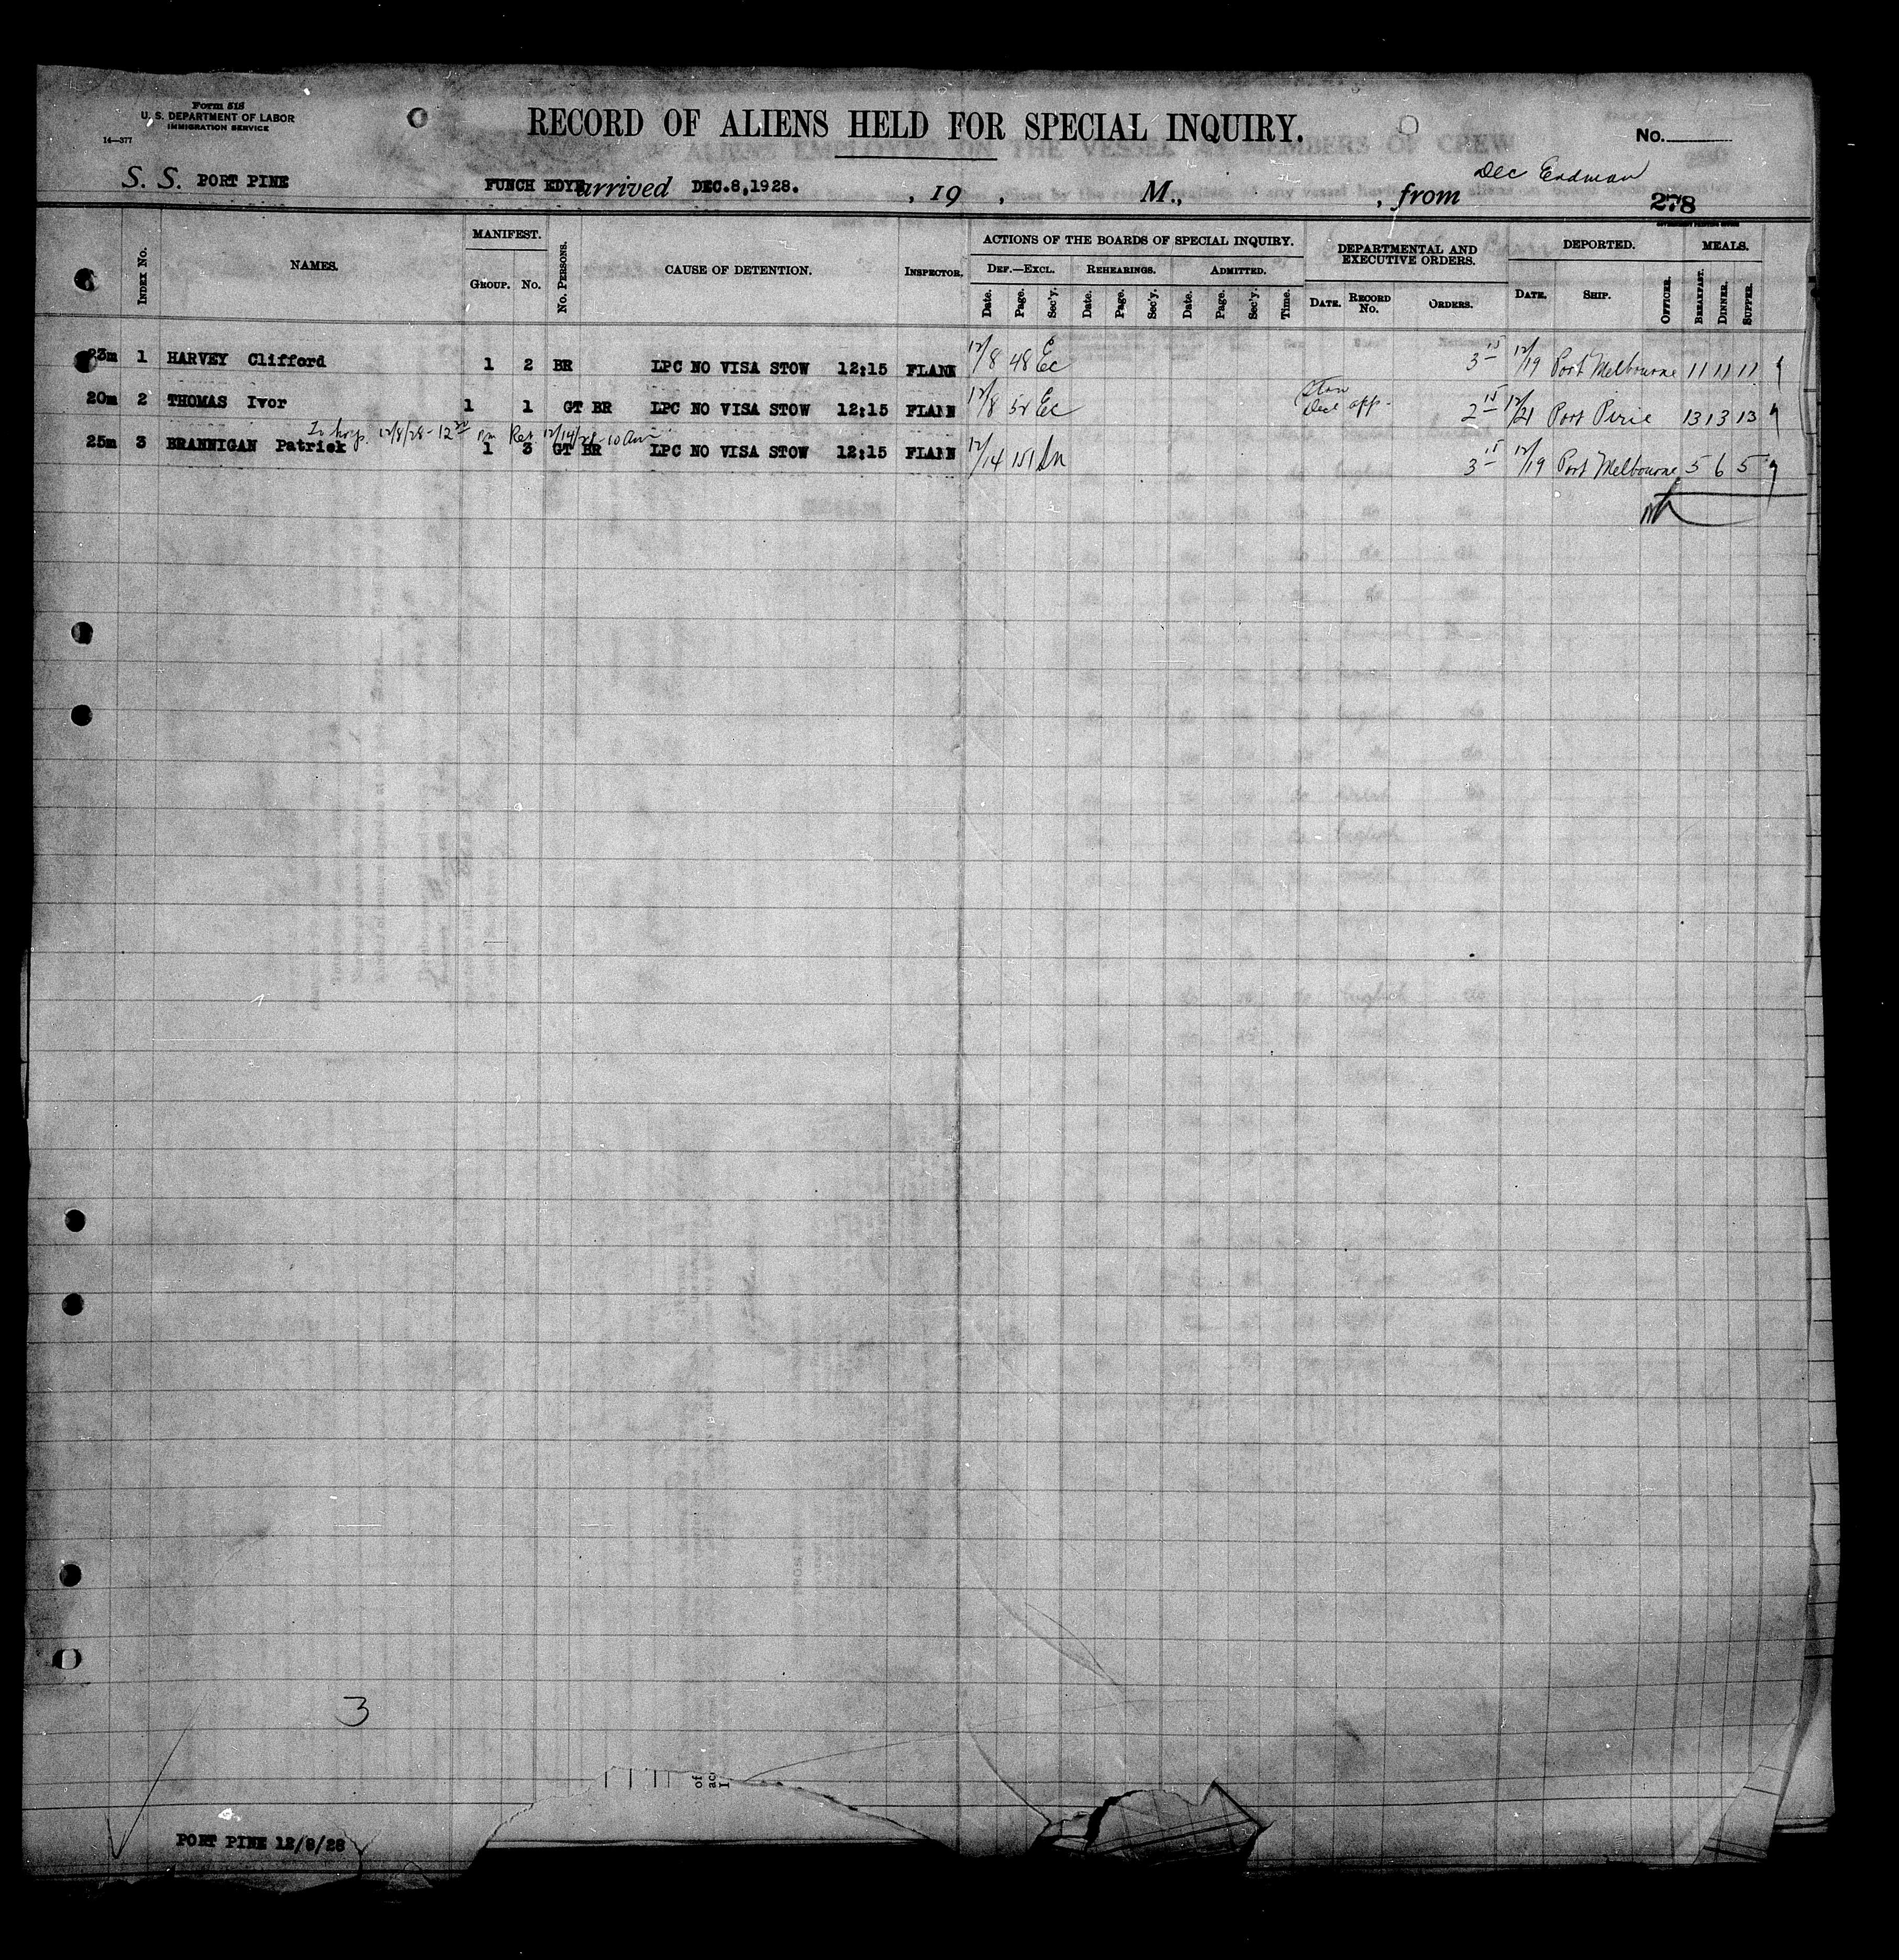 Form 518
U. S. DEPARTMENT OF LABOR
IMMIGRATION SERVICE
14—377
RECORD OF ALIENS HELD FOR SPECIAL INQUIRY.
No.
S. S. PORT PINE FUNCH EDYE arrived DEC.8,1928. , 19 , M., , from
278
INDEX No. NAMES. MANIFEST. GROUP. No. No. PERSONS. CAUSE OF DETENTION. INSPECTOR. ACTIONS OF THE BOARDS OF SPECIAL INQUIRY. DEF.—EXCL. Date. Page. Sec'y. REHEARINGS. Date. Page. Sec'y. ADMITTED. Date. Page. Sec'y. Time. DEPARTMENTAL AND EXECUTIVE ORDERS. DATE. RECORD No. ORDERS. DEPORTED. DATE. SHIP. OFFICER. MEALS. BREAKFAST. DINNER. SUPPER.
23m 1 HARVEY Clifford 1 2 BR LPC NO VISA STOW 12:15 FLANN 12/8 48 Ec 3 15 12/19 Port Melbourne 11 11 11
20m 2 THOMAS Ivor 1 1 GT BR LPC NO VISA STOW 12:15 FLANN 12/8 52 Ec app. 2 15 12/21 Port Pirie 13 13 13
In hosp. 12/8/28-12 20 pm Rel 12/14/28-10 am
25m 3 BRANNIGAN Patrick 1 3 GT BR LPC NO VISA STOW 12:15 FLANN 12/14 151 3 15 12/19 Port Melbourne 5 6 5
3
PORT PINE 12/8/28